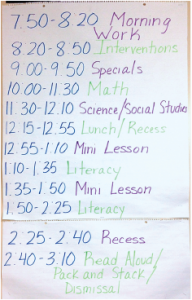 7.50-8.20 Morning
Work
8.20-8.50 Interventions
9.00-9.50 Specials
10.00-11.30 Math
11.30-12.10 Science/Social Studies
12.15-12.55 Lunch/Recess
12.55-1.10 Mini Lesson
1.10-1.35 Literacy
1.35-1.50 Mini Lesson
1.50-2.25 Literacy
2.25-2.40 Recess
2.40-3.10 Read Aloud/
Pack and Stack/
Dismissal